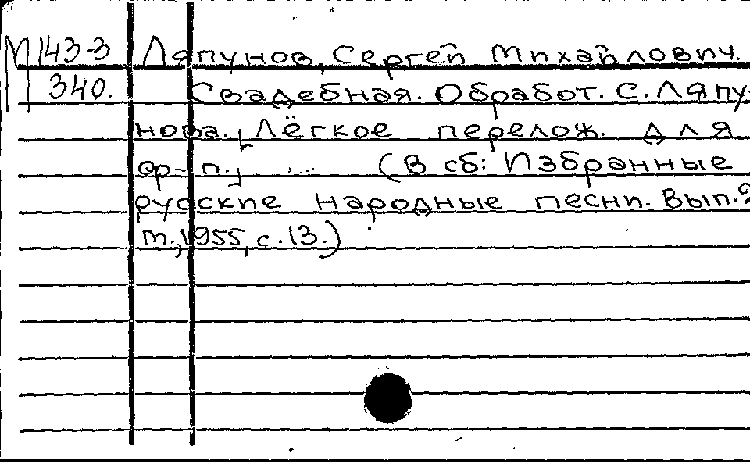 М 143-3 Ляпунов, Сергей Михайлович.
340. Свадебная. Обработ. С. Ляпу-
нова. Лёгкое перелож. для
ф-п. (В сб: Избранные
русские народные песни. Вып. 2
М., 1955, с. 13.)